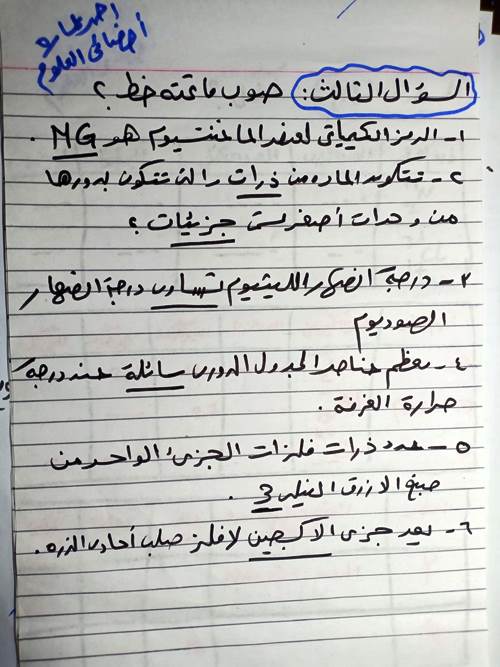 احمد عمار
أخصائى العلوم
السؤال الثالث: صوب ما تحته خط ؟
١- الرمز الكيميائى لعنصر الماغنسيوم هو MG .
٢- تتكون المادة من ذرات والتى تتكون بدورها
من وحدات أصغر تسمى جزيئات ؟
٣- درجة انصهار الليثيوم تساوى درجة انصهار
الصوديوم
٤- معظم عناصر الجدول الدورى سائلة عند درجة
حرارة الغرفة .
٥- عدد ذرات فلزات الجزئ الواحد من
صبغ الازرق النيلى 3 .
٦- يعد جزئ الاكسجين لافلز صلب أحادى الذره .